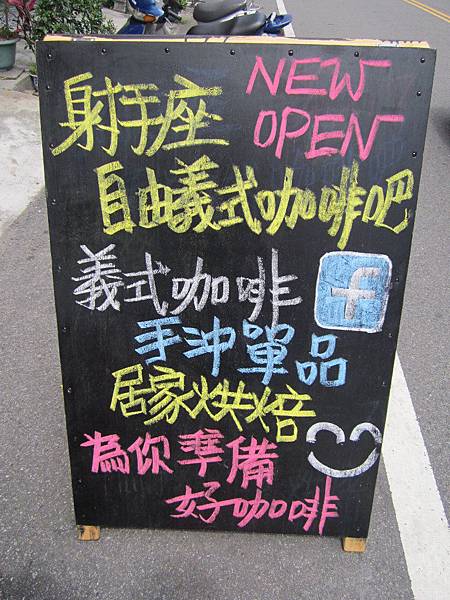 射手座 NEW OPEN
自由義式咖啡吧
義式咖啡 f
手沖單品
居家烘焙
為你準備
好咖啡